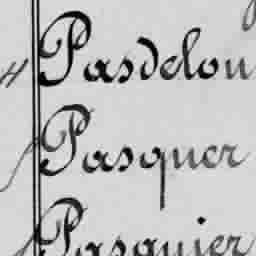 Pasdelou
Pasquer
Pasquier